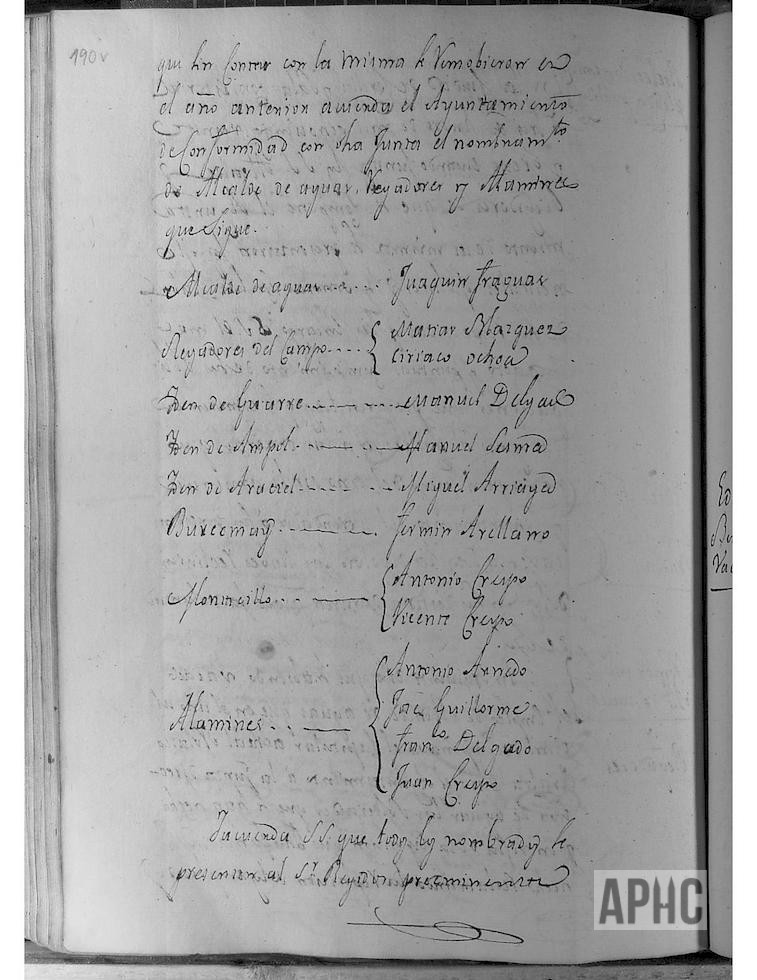 190v
que sin Contar con la misma se Removieron en
el año anterior acuerda el Ayuntamiento
de Conformidad con dha Junta el nombram.to
de Alcalde de aguas, Regadores y Alamines
que sigue.
Alcalde de aguas Juaquin Fraguas
Regadores del Campo { Matias Blazquez
Ciriaco Ochoa
Iden de Guarre Manuel Delgado
Iden de Ampol Manuel Sesma
Iden de Araciel Miguel Arriaga
Fermin Arellano
Montecillo { Antonio Crespo
Vicente Crespo
Alamines { Antonio Arnedo
Guillorme
Fran.co Delgado
Juan Crespo
Yacuerda S.S. que todos los nombrados se
presenten al Sr Regidor preeminente
Ed
APHC